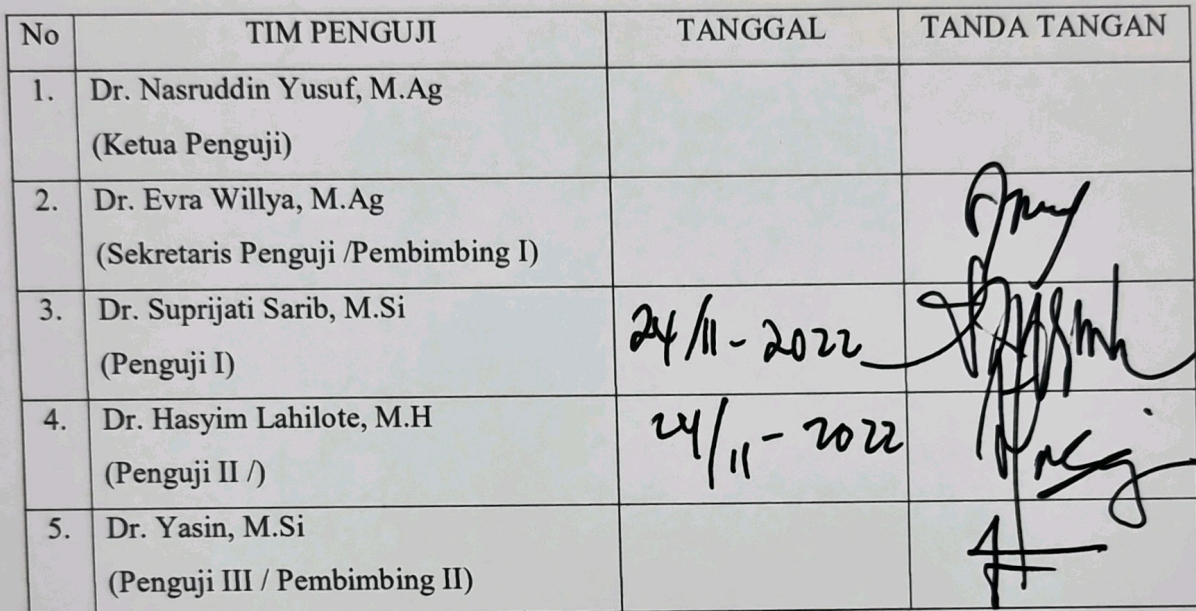 No TIM PENGUJI TANGGAL TANDA TANGAN
1. Dr. Nasruddin Yusuf, M.Ag
(Ketua Penguji)
2. Dr. Evra Willya, M.Ag
(Sekretaris Penguji /Pembimbing I)
3. Dr. Suprijati Sarib, M.Si
24/11-2022
(Penguji I)
4. Dr. Hasyim Lahilote, M.H
24/11-2022
(Penguji II /)
5. Dr. Yasin, M.Si
(Penguji III / Pembimbing II)